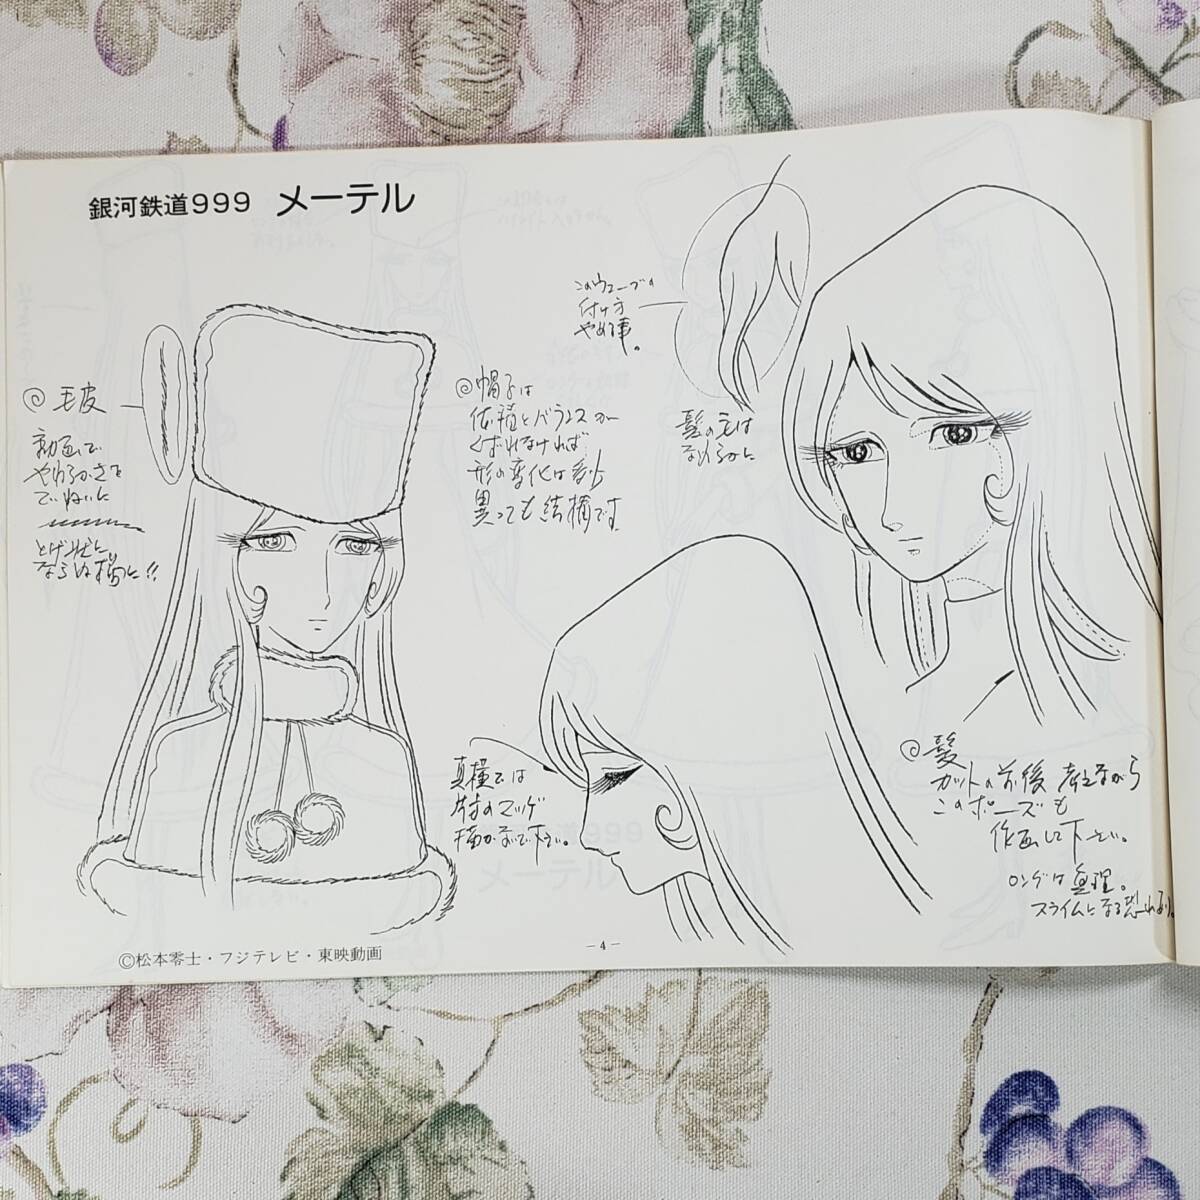 銀河鉄道999 メーテル
このウェーブの
付け方
やめる事。
◎毛皮
動画で
やわらかさを
ていねいに
とげ状に
ならぬ様に!!
◎帽子は
体積とバランスが
くずれなければ
形の変化は多少
異っても結構です
髪の毛は
なめらかに
真横では
片方のマツゲ
描かないで下さい。
◎髪
カットの前後 考えながら
このポーズも
作画して下さい。
ロングは
スライムになる恐れあり。
銀河鉄道999
メーテル
©松本零士・フジテレビ・東映動画
－4－